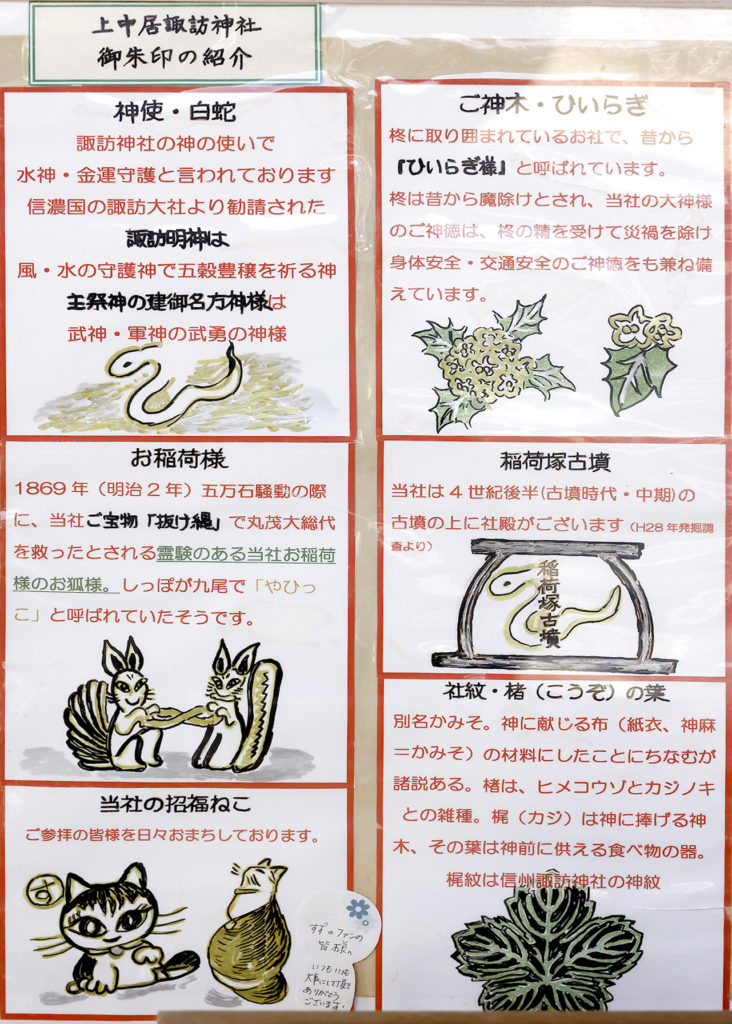 上中居諏訪神社
御朱印の紹介
神使・白蛇
諏訪神社の神の使いで
水神・金運守護と言われております
信濃国の諏訪大社より勧請された
諏訪明神は
風・水の守護神で五穀豊穣を祈る神
主祭神の建御名方神様は
武神・軍神の武勇の神様
お稲荷様
1869年（明治2年）五万石騒動の際
に、当社ご宝物「抜け縄」で丸茂大総代
を救ったとされる霊験のある当社お稲荷
様のお狐様。しっぽが九尾で「やひっ
こ」と呼ばれていたそうです。
当社の招福ねこ
ご参拝の皆様を日々おまちしております。
す
すずのファンの
皆様へ
いつもいつも
大事にして頂き
ありがとう
ございます!
ご神木・ひいらぎ
柊に取り囲まれているお社で、昔から
『ひいらぎ様』と呼ばれています。
柊は昔から魔除けとされ、当社の大神様
のご神徳は、柊の精を受けて災禍を除け
身体安全・交通安全のご神徳をも兼ね備
えています。
稲荷塚古墳
当社は4世紀後半(古墳時代・中期)の
古墳の上に社殿がございます（H28年発掘調
査より）
稲荷塚古墳
社紋・楮（こうぞ）の葉
別名かみそ。神に献じる布（紙衣、神麻
＝かみそ）の材料にしたことにちなむが
諸説ある。楮は、ヒメコウゾとカジノキ
との雑種。梶（カジ）は神に捧げる神
木、その葉は神前に供える食べ物の器。
梶紋は信州諏訪神社の神紋